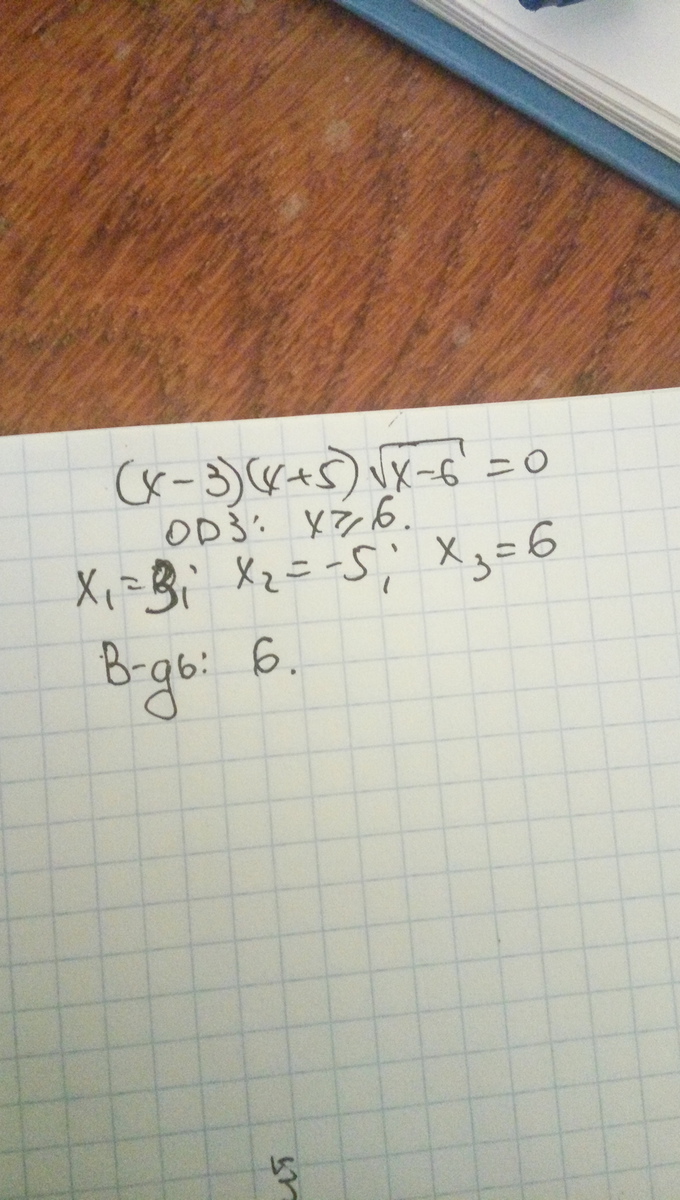 (x-3)(x+5)√x-6 = 0
ОДЗ: x⩾6.
x₁=3; x₂=-5; x₃=6
В-дь: 6.